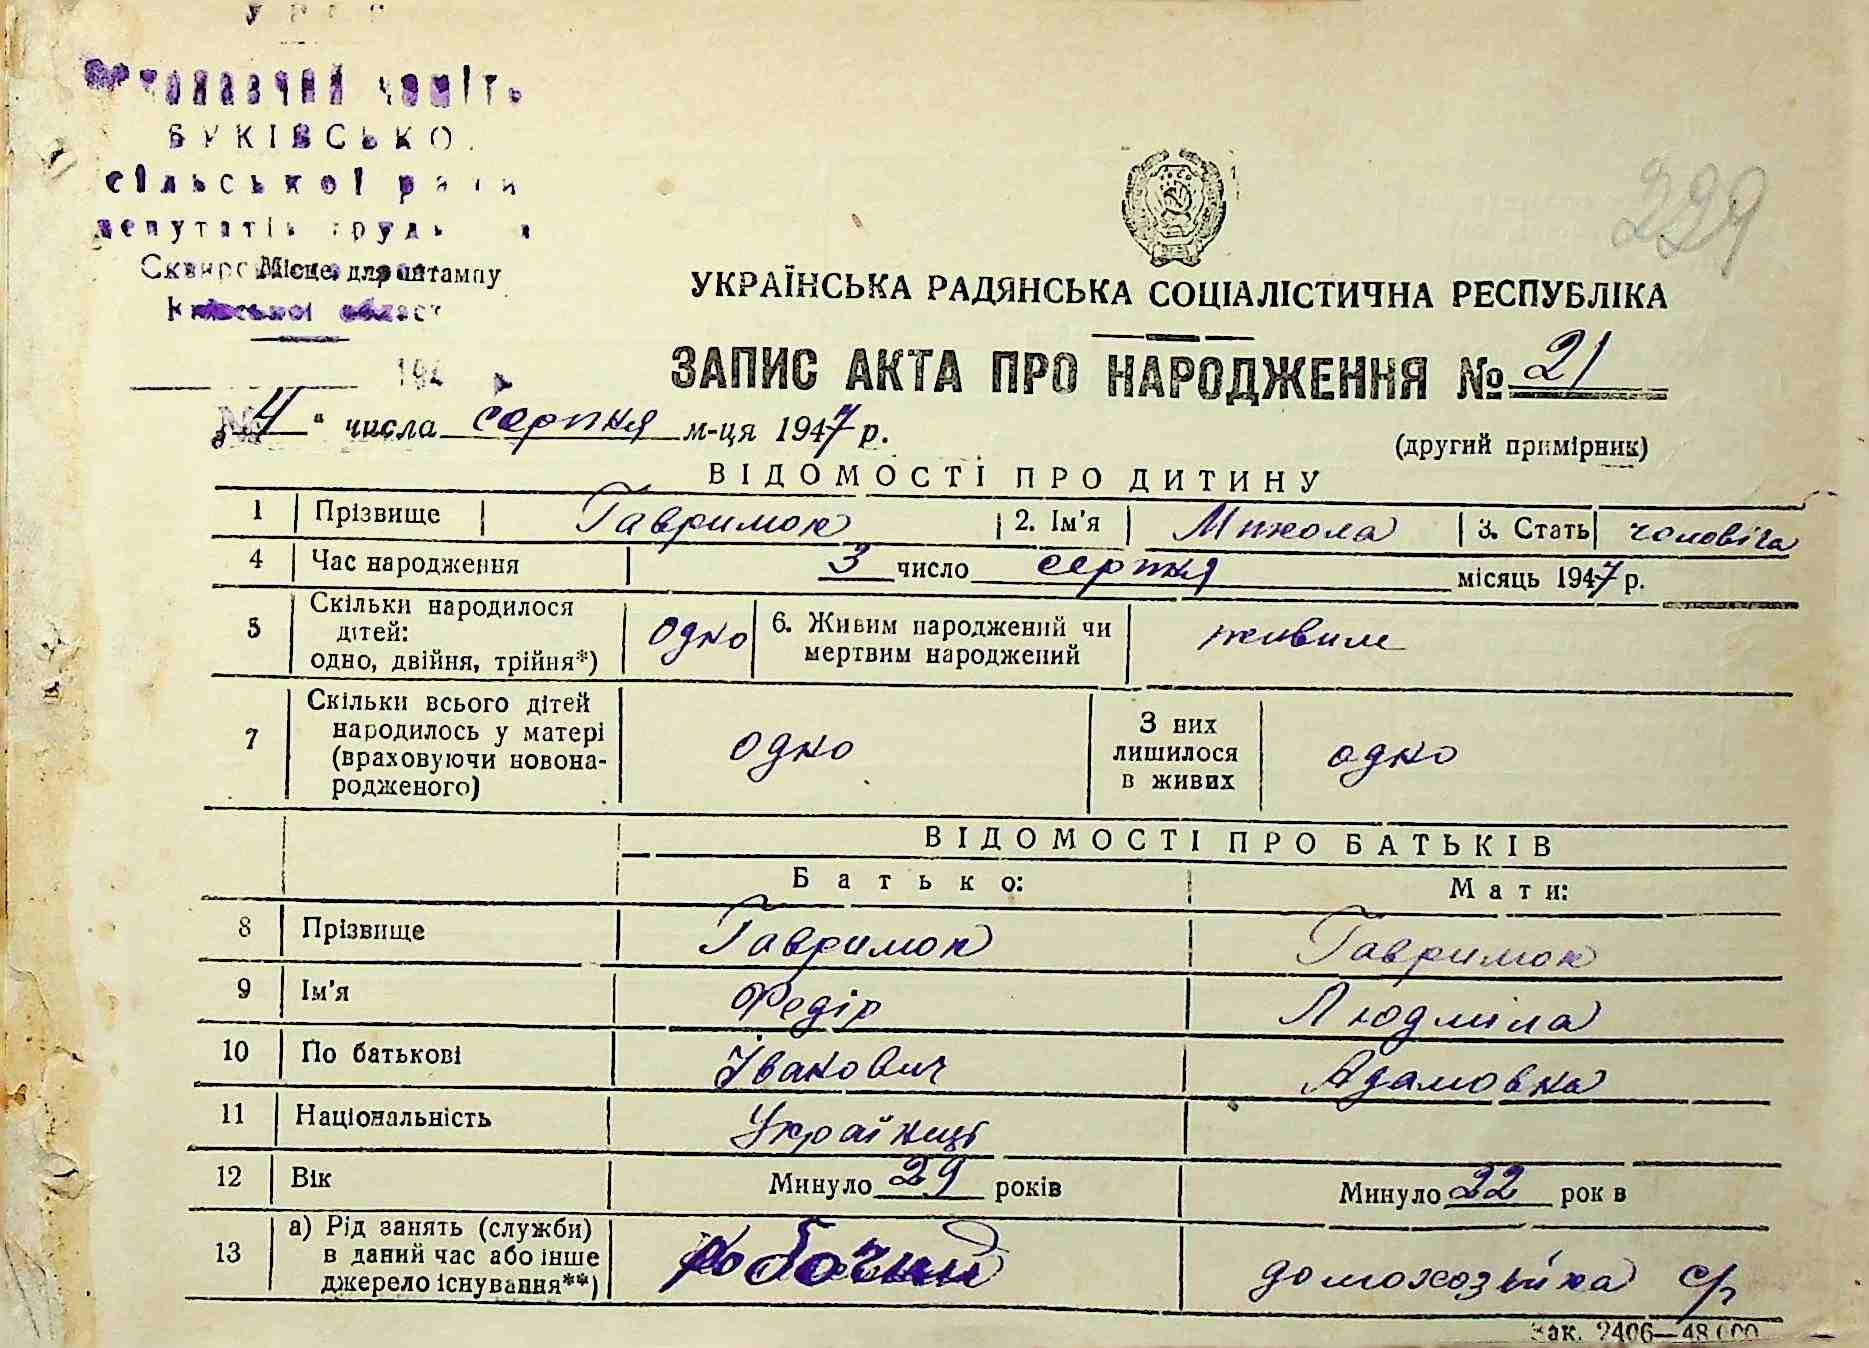 УРСР
Виконавчий коміте
БУКІВСЬКО
сільської ради
депутатів труд
Сквирс
Місце для штампу
Київської област
194
УКРАЇНСЬКА РАДЯНСЬКА СОЦІАЛІСТИЧНА РЕСПУБЛІКА
ЗАПИС АКТА ПРО НАРОДЖЕННЯ № 21
229
4 " числа серпня м-ця 1947 р.
(другий примірник)
ВІДОМОСТІ ПРО ДИТИНУ
1 Прізвище Гавримок 2. Ім'я Микола 3. Стать чоловіча
4 Час народження 3 число серпня місяць 1947 р.
5 Скільки народилося дітей: одно, двійня, трійня*) одно 6. Живим народжений чи мертвим народжений живим
7 Скільки всього дітей народилось у матері (враховуючи новонародженого) одно З них лишилося в живих одно
ВІДОМОСТІ ПРО БАТЬКІВ
Батько: Мати:
8 Прізвище Гавримок Гавримок
9 Ім'я Федір Людміла
10 По батькові Іванович Адамовна
11 Національність Українці
12 Вік Минуло 29 років Минуло 22 рок в
13 а) Рід занять (служби) в даний час або інше джерело існування**) робочий домохозяйка с/г
Зак. 2406—48.000